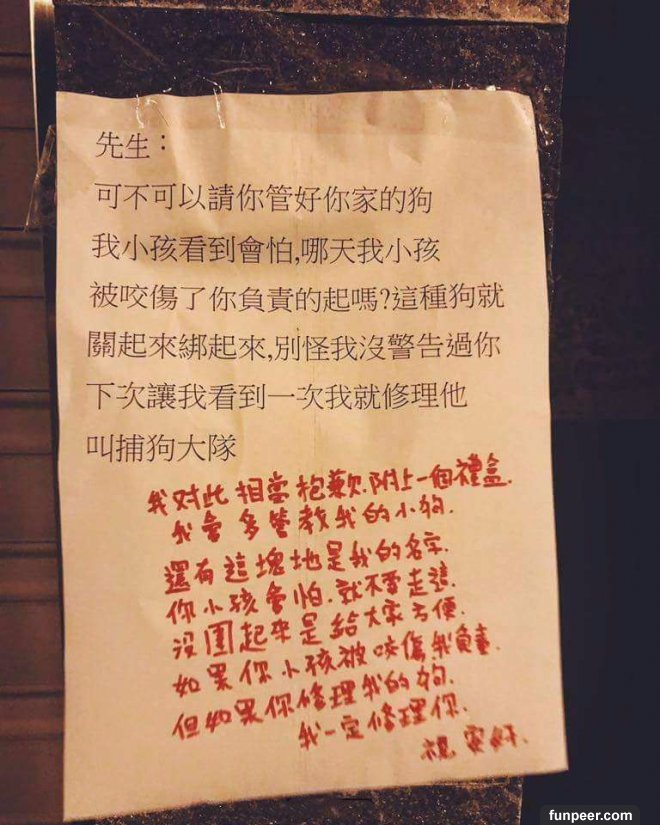 先生：
可不可以請你管好你家的狗
我小孩看到會怕,哪天我小孩
被咬傷了你負責的起嗎?這種狗就
關起來綁起來,別怪我沒警告過你
下次讓我看到一次我就修理他
叫捕狗大隊
我对此相當抱歉.附上一個禮盒.
我會多管教我的小狗.
還有這塊地是我的名字.
你小孩會怕.就不要走這.
沒圍起來是給大家方便.
如果你小孩被咬傷我負責.
但如果你修理我的狗.
我一定修理你.
funpeer.com